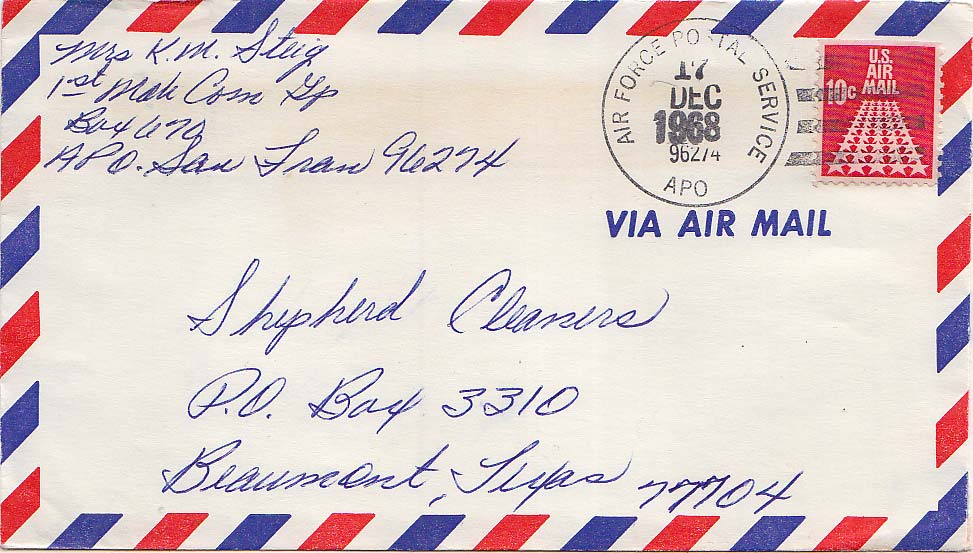 Mrs K.M. Steig
1st Mob Com Gp
Box 670
APO. San Fran 96274
AIR FORCE POSTAL SERVICE
17
DEC
1968
96274
APO
U.S.
AIR
MAIL
10c
VIA AIR MAIL
Shepherd Cleaners
P.O. Box 3310
Beaumont, Texas 77704